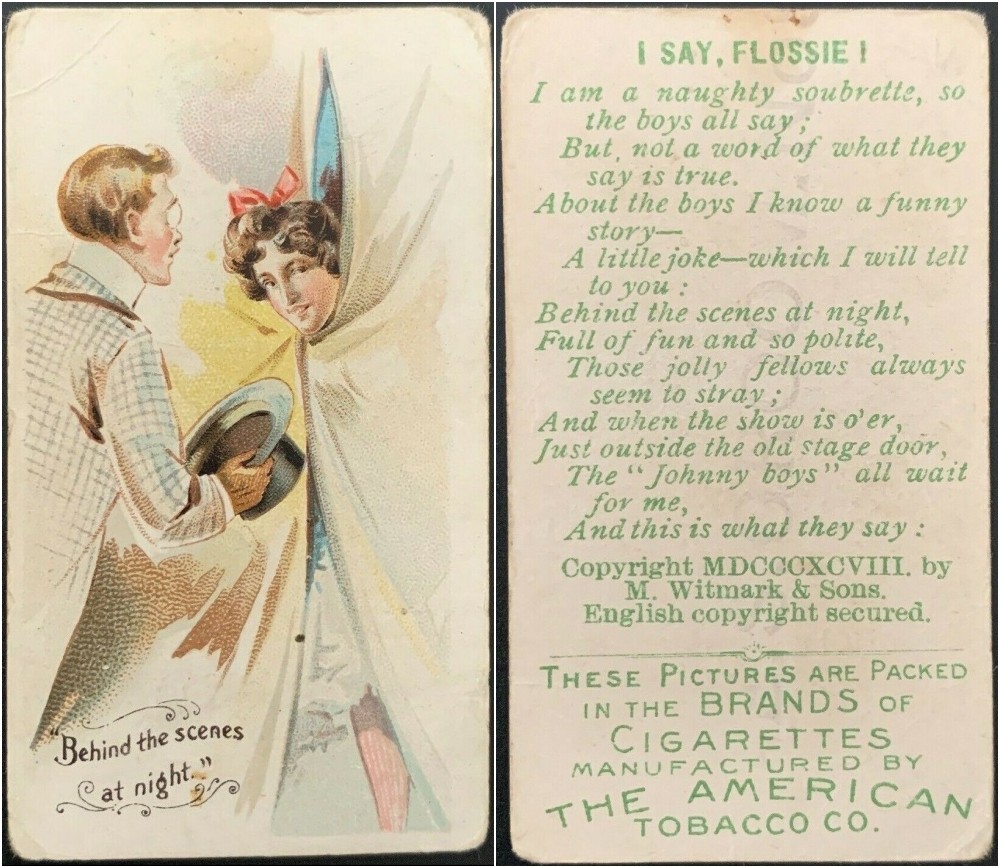 "Behind the scenes
at night."
I SAY, FLOSSIE!
I am a naughty soubrette, so
the boys all say;
But, not a word of what they
say is true.
About the boys I know a funny
story—
A little joke—which I will tell
to you:
Behind the scenes at night,
Full of fun and so polite,
Those jolly fellows always
seem to stray;
And when the show is o'er,
Just outside the old stage door,
The "Johnny boys" all wait
for me,
And this is what they say:
Copyright MDCCCXCVIII. by
M. Witmark & Sons.
English copyright secured.
THESE PICTURES ARE PACKED
IN THE BRANDS OF
CIGARETTES
MANUFACTURED BY
THE AMERICAN
TOBACCO CO.